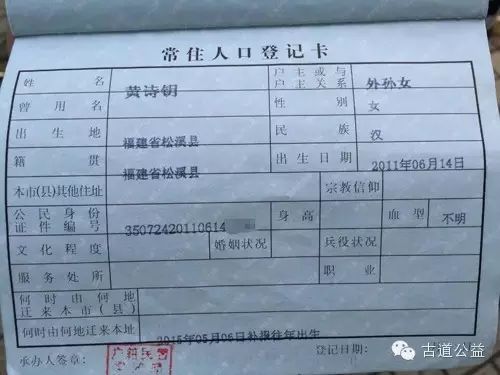 常住人口登记卡
姓名 黄诗钥 户主或与户主关系 外孙女
曾用名 性别 女
出生地 福建省松溪县 民族 汉
籍贯 福建省松溪县 出生日期 2011年06月14日
本市(县)其他住址 宗教信仰
公民身份证件编号 35072420110614 身高 血型 不明
文化程度 婚姻状况 兵役状况
服务处所 职业
何时由何地迁来本市(县)
何时由何地迁来本址 2015年05月06日补报往年出生
承办人签章: 登记日期:
古道公益